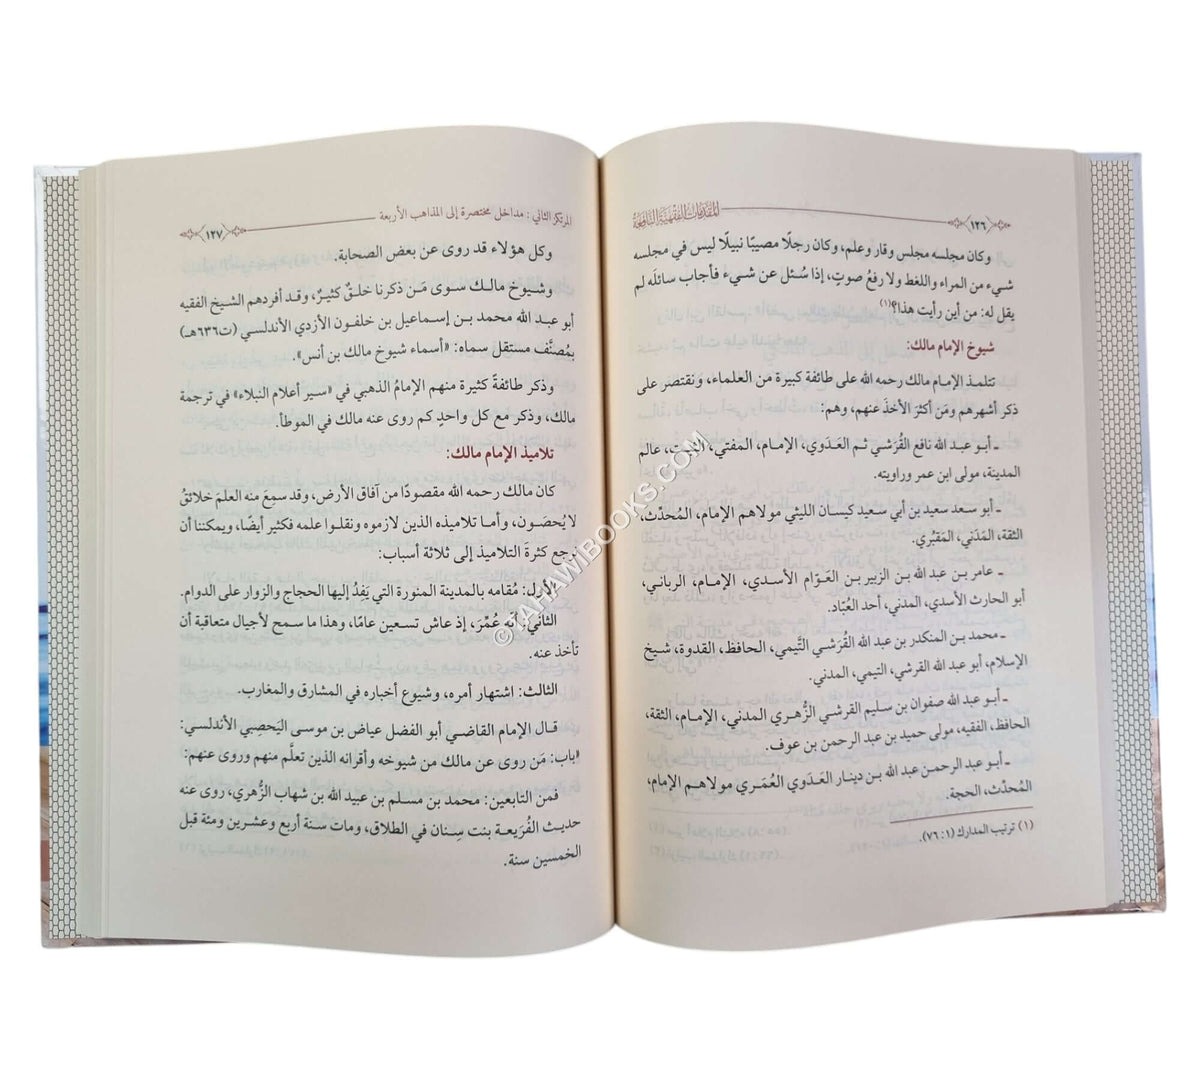 المقدمات الفقهية النافعة
١٢٦
وكان مجلِسه مجلس وقار وعلم، وكان رجلًا مصيبًا نبيلًا ليس في مجلسه
شيء من المراء واللغط ولا رفعُ صوتٍ، إذا سُئل عن شيء فأجاب سائلَه لم
يقل له: من أين رأيت هذا؟(١)
شيوخ الإمام مالك:
تتلمذ الإمام مالك رحمه الله على طائفة كبيرة من العلماء، ونقتصر على
ذكر أشهرهم ومَن أكثرَ الأخذَ عنهم، وهم:
ـ أبو عبد الله نافع القُرَشي ثم العَدَوي، الإمام، المفتي، الثبت، عالم
المدينة، مولى ابن عمر وراويته.
ـ أبو سعد سعيد بن أبي سعيد كيسان الليثي مولاهم الإمام، المُحدِّث،
الثقة، المَدَني، المَقبُري.
ـ عامر بن عبد الله بن الزبير بن العَوّام الأسدي، الإمام، الرباني،
أبو الحارث الأسدي، المدني، أحد العُبّاد.
ـ محمد بن المنكدر بن عبد الله القُرَشي التَّيمي، الحافظ، القدوة، شيخ
الإسلام، أبو عبد الله القرشي، التيمي، المدني.
ـ أبو عبد الله صفوان بن سليم القرشي الزُّهري المدني، الإمام، الثقة،
الحافظ، الفقيه، مولى حميد بن عبد الرحمن بن عوف.
ـ أبو عبد الرحمن عبد الله بن دينار العَدَوي العُمَري مولاهم الإمام،
المُحدِّث، الحجة.
(١) ترتيب المدارك (١: ٧٦).
المرتكز الثاني: مداخل مختصرة إلى المذاهب الأربعة
١٢٧
وكل هؤلاء قد روى عن بعض الصحابة.
وشيوخ مالك سوى مَن ذكرنا خلقٌ كثيرٌ، وقد أفردهم الشيخ الفقيه
أبو عبد الله محمد بن إسماعيل بن خلفون الأزدي الأندلسي (ت٦٣٦هـ)
بمُصنَّف مستقل سماه: «أسماء شيوخ مالك بن أنس».
وذكر طائفةً كثيرة منهم الإمامُ الذهبي في «سير أعلام النبلاء» في ترجمة
مالك، وذكر مع كل واحدٍ كم روى عنه مالك في الموطأ.
تلاميذ الإمام مالك:
كان مالك رحمه الله مقصودًا من آفاق الأرض، وقد سمِع منه العلمَ خلائقُ
لا يُحصَون، وأما تلاميذه الذين لازموه ونقلوا علمه فكثير أيضًا، ويمكننا أن
نرجع كثرةَ التلاميذ إلى ثلاثة أسباب:
الأول: مُقامه بالمدينة المنورة التي يَفِدُ إليها الحجاج والزوار على الدوام.
الثاني: أنّه عُمِّرَ، إذ عاش تسعين عامًا، وهذا ما سمح لأجيال متعاقبة أن
تأخذ عنه.
الثالث: اشتهار أمره، وشيوع أخباره في المشارق والمغارب.
قال الإمام القاضي أبو الفضل عياض بن موسى اليَحصِبي الأندلسي:
«باب: مَن روى عن مالك من شيوخه وأقرانه الذين تعلَّم منهم وروى عنهم:
فمن التابعين: محمد بن مسلم بن عبيد الله بن شهاب الزُّهري، روى عنه
حديث الفُرَيعة بنت سِنان في الطلاق، ومات سنة أربع وعشرين ومئة قبل
الخمسين سنة.
© TAHAWIBOOKS.COM